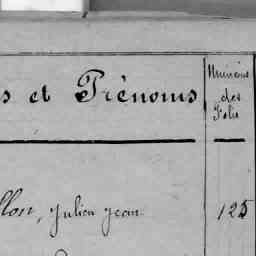 s et Prénoms
Numéros
des
Folio
llon, Julien Jean
125